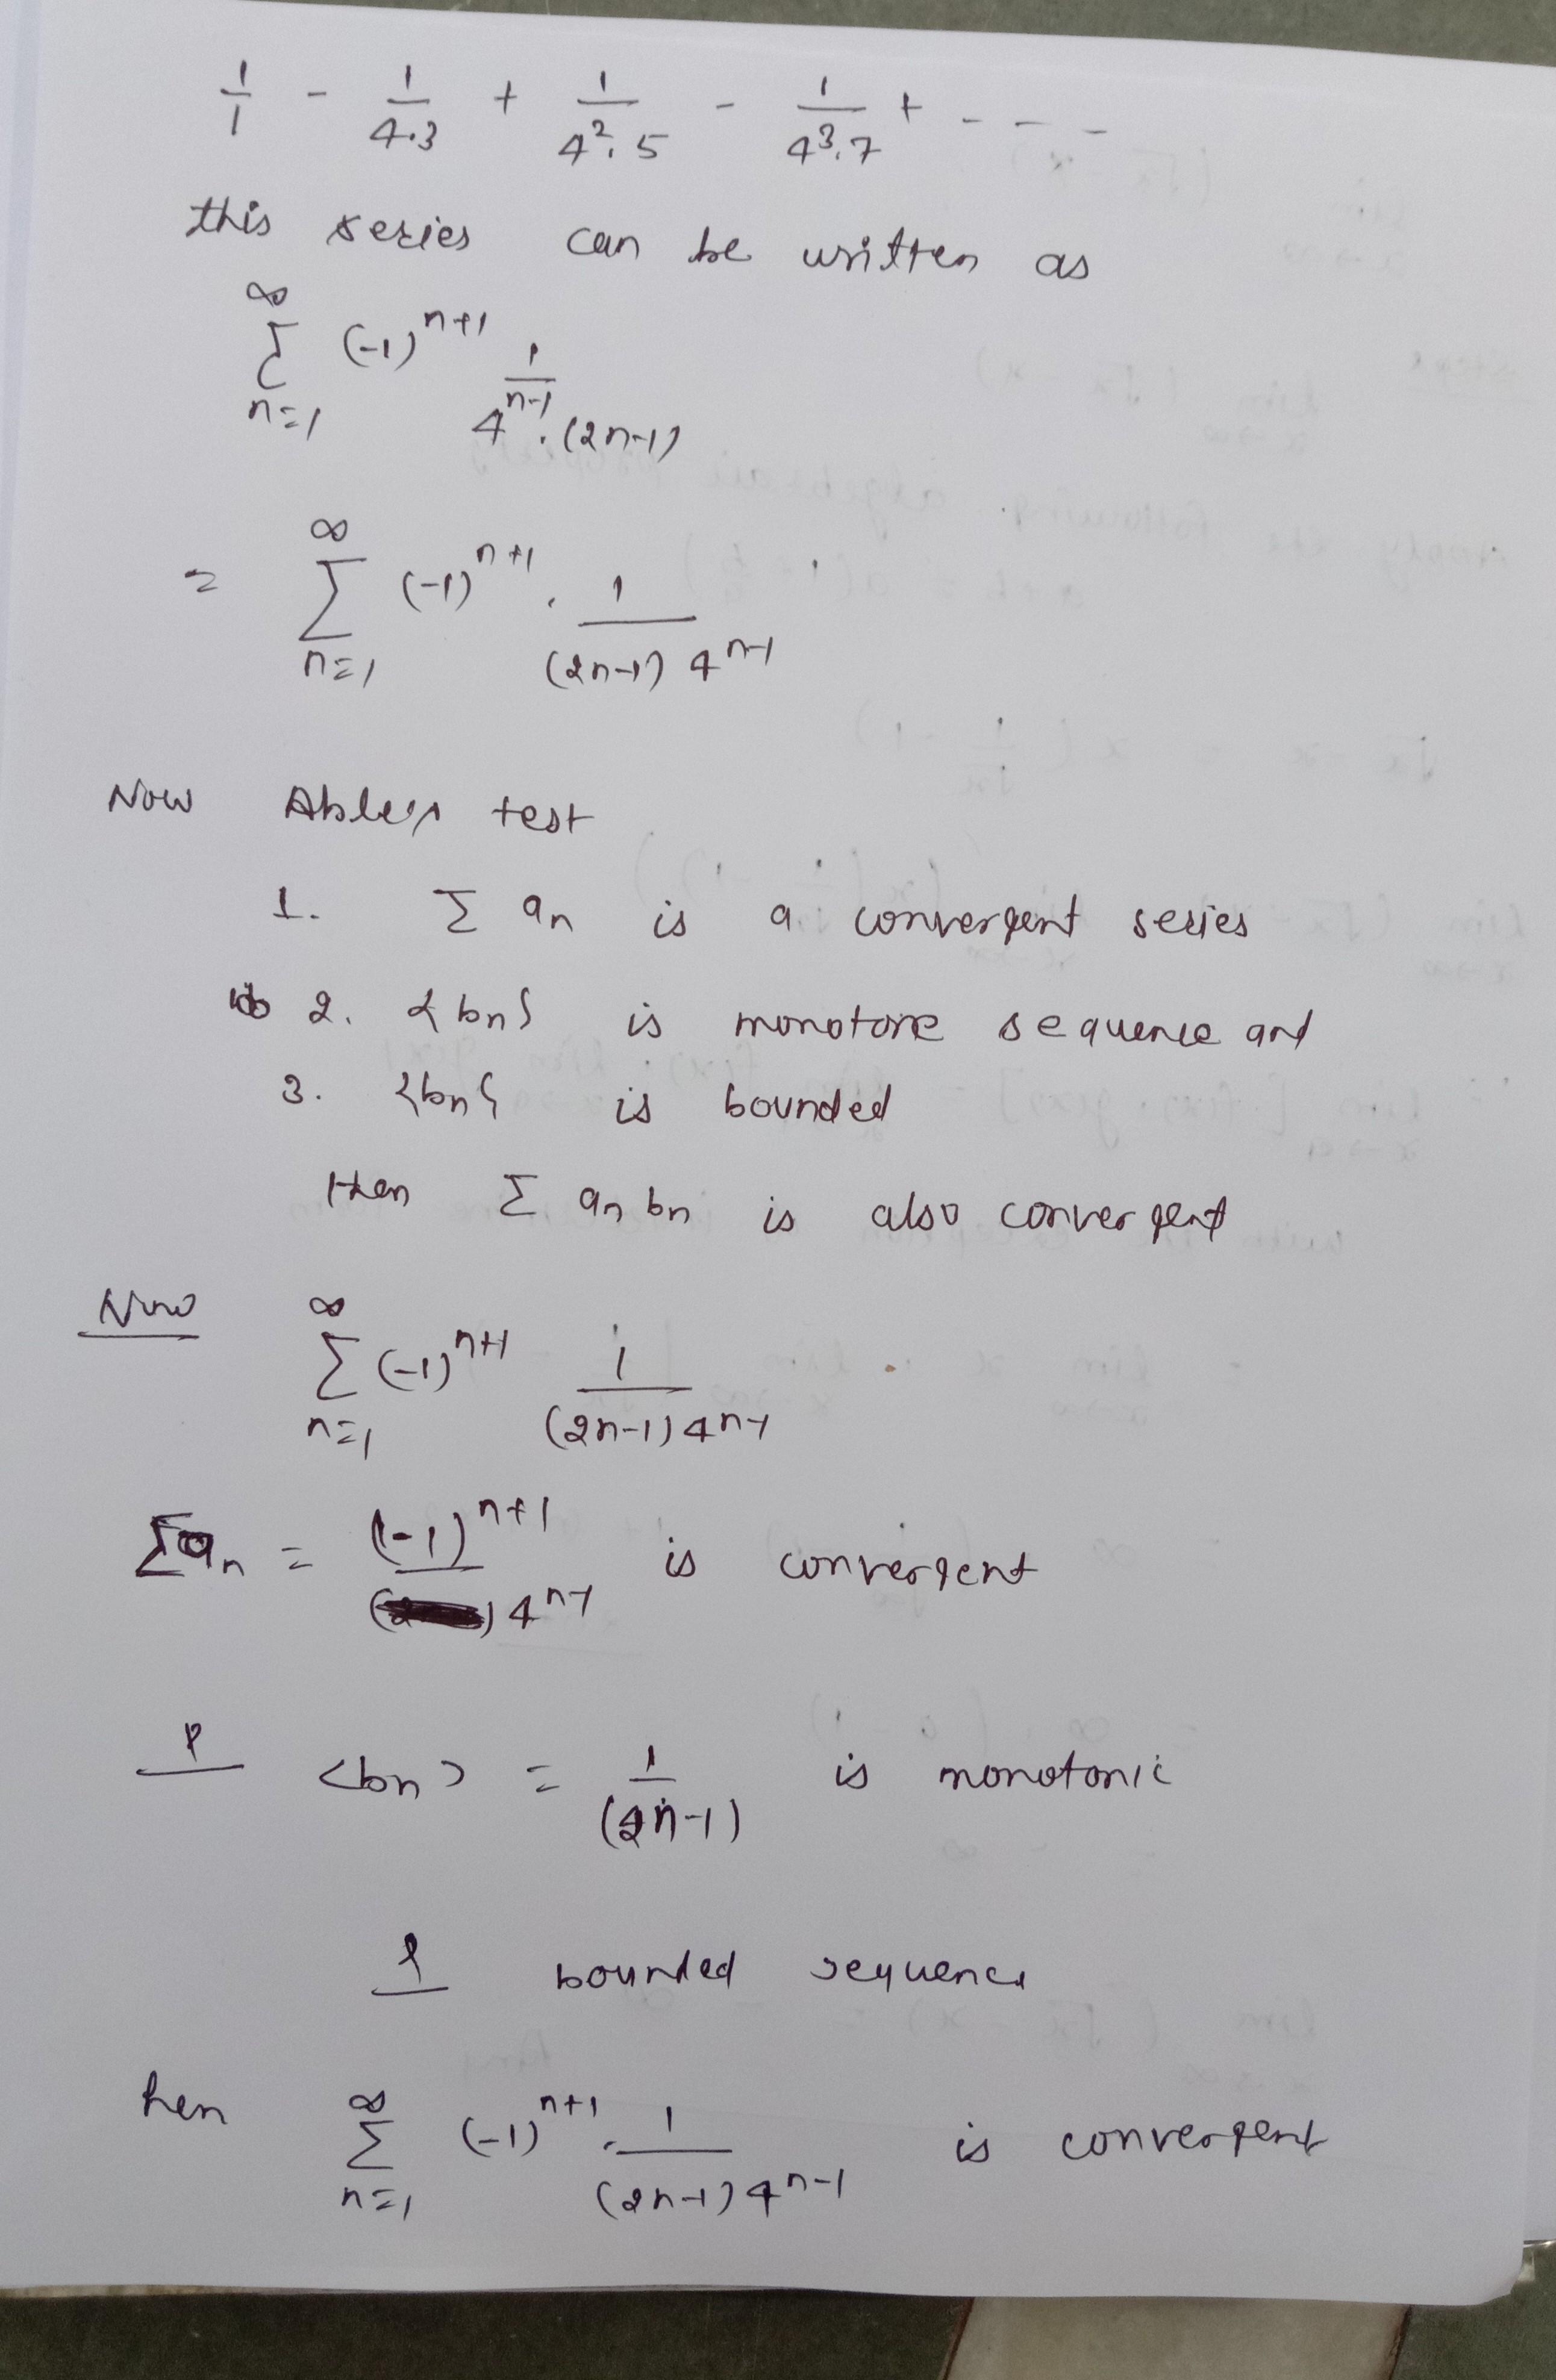 1/1 - 1/4.3 + 1/4².5 - 1/4³.7 + - - -
this series can be written as
∞ Σ n=1 (-1)^n+1 1/4^n-1.(2n-1)
= ∞ Σ n=1 (-1)^n+1 . 1/(2n-1) 4^n-1
Now Ables test
1. Σ an is a convergent series
2. {bn} is monotone sequence and
3. {bn} is bounded
then Σ an bn is also convergent
Now ∞ Σ n=1 (-1)^n+1 1/(2n-1) 4^n-1
Σan = (-1)^n+1/4^n-1 is convergent
& <bn> = 1/(2n-1) is monotonic
& bounded sequence
hen ∞ Σ n=1 (-1)^n+1 . 1/(2n-1) 4^n-1 is convergent